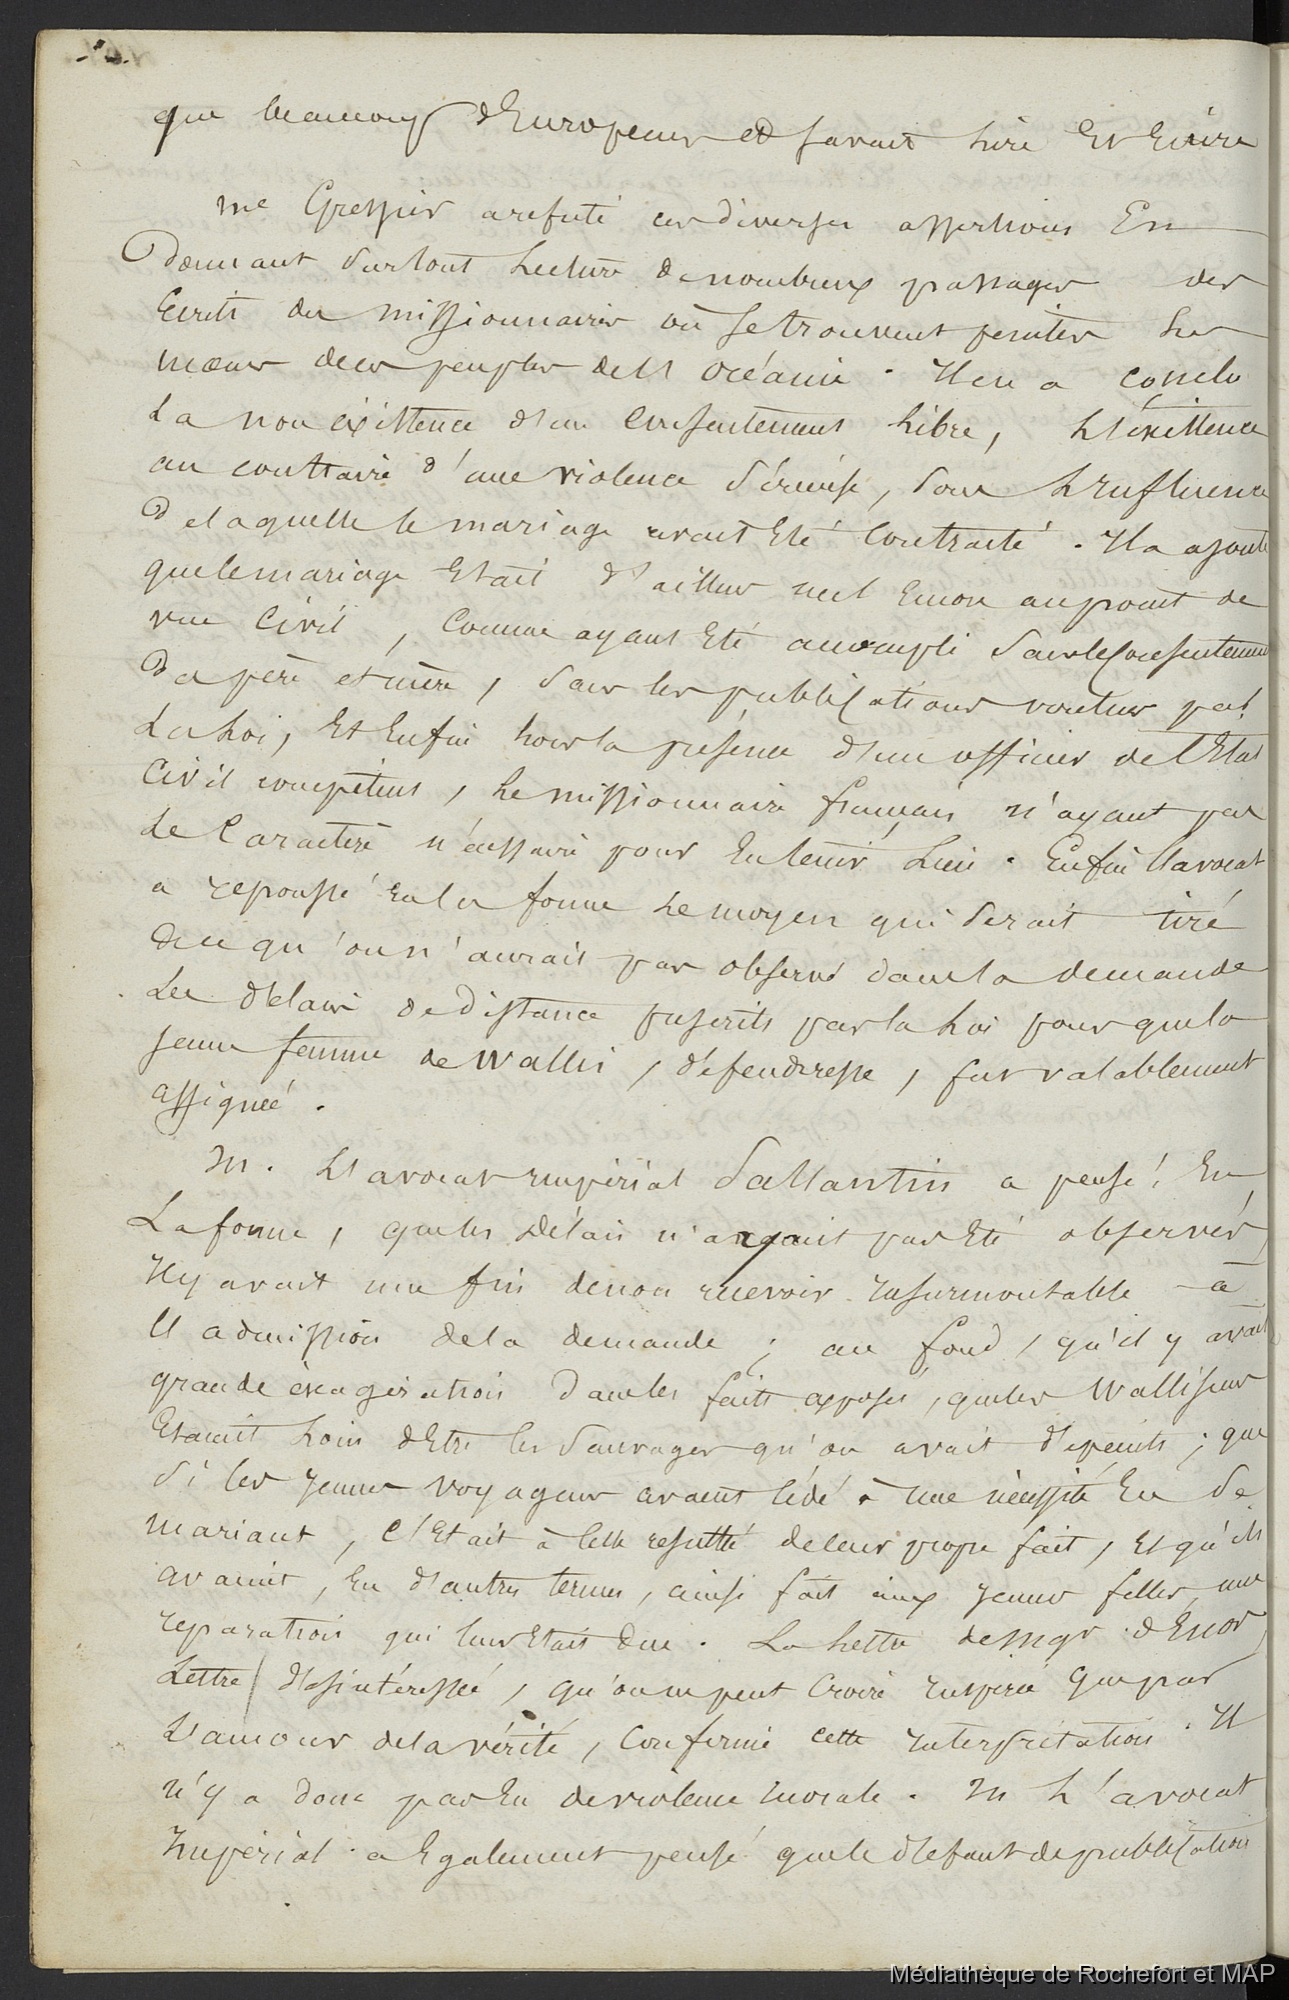 que beaucoup d'Européens et savait lire Et Ecrire
Me Gressier a refuté ces diverses assertions En
donnant surtout lecture de nombreux passages des
Ecrits des missionnaires où se trouvent peintes les
mœurs de ces peuples de l'océanie. Il en a conclu
La non existence d'un consentement libre, L'existence
au contraire d'une violence sérieuse, sous L'influence
de laquelle le mariage avait Eté contracté. Il a ajouté
que le mariage Etait d'ailleurs nul Encore au point de
vue Civil, Comme ayant Eté accompli sans le Consentement
des père et mère, sans les publications voulues par
La Loi, Et Enfin hors la présence d'un officier de l'Etat
Civil compétent, Le missionnaire français n'ayant pas
le Caractère nécessaire pour En tenir Lieu. Enfin l'avocat
a repoussé En la forme Le moyen qui serait tiré
de ce qu'on n'aurait pas observé dans la demande
Les délais de distance prescrits par la Loi pour que la
jeune femme de Wallis, défenderesse, fut valablement
assignée.
M. L'avocat impérial Sallantin a pensé, En
La forme, que les délais n'ayant pas Eté observés,
Il y avait une fin de non recevoir insurmontable à
l'admission de la demande; au fond, qu'il y avait
grande éxagération dans les faits exposés, que les Wallisiens
Etaient Loin d'Etre les sauvages qu'on avait dépeints; que
si les jeunes voyageurs avaient cédé à une nécessité En se
mariant, c'Etait à le résulté de leur propre fait, Et qu'ils
avaient, En d'autres termes, ainsi fait aux jeunes filles une
reparation qui leur Etait due. La Lettre de Mgr d'Enos,
Lettre désintéressée, qu'on ne peut Croire inspirée que par
L'amour de la vérité, confirme cette interprétation. Il
n'y a donc pas Eu de violence morale. M L'avocat
Impérial a Egalement pensé que le défaut de publication
Médiathèque de Rochefort et MAP